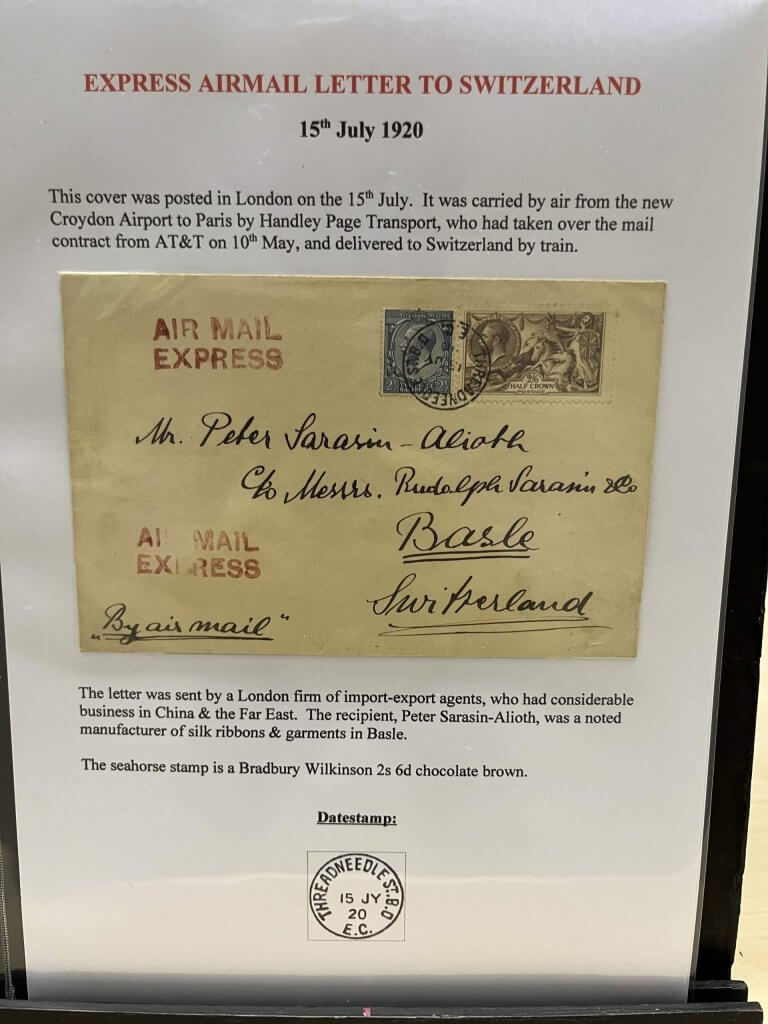 EXPRESS AIRMAIL LETTER TO SWITZERLAND
15th July 1920
This cover was posted in London on the 15th July. It was carried by air from the new
Croydon Airport to Paris by Handley Page Transport, who had taken over the mail
contract from AT&T on 10th May, and delivered to Switzerland by train.
AIR MAIL
EXPRESS
THREADNEEDLE ST. B.O
E.C.
2½ 2½
2/6
HALF CROWN
POSTAGE
Mr. Peter Sarasin-Alioth
c/o Messrs. Rudolph Sarasin & Co
Basle
Switzerland
AI MAIL
EX RESS
„By air mail"
The letter was sent by a London firm of import-export agents, who had considerable
business in China & the Far East. The recipient, Peter Sarasin-Alioth, was a noted
manufacturer of silk ribbons & garments in Basle.
The seahorse stamp is a Bradbury Wilkinson 2s 6d chocolate brown.
Datestamp:
THREADNEEDLE ST. B.O
15 JY
20
E.C.